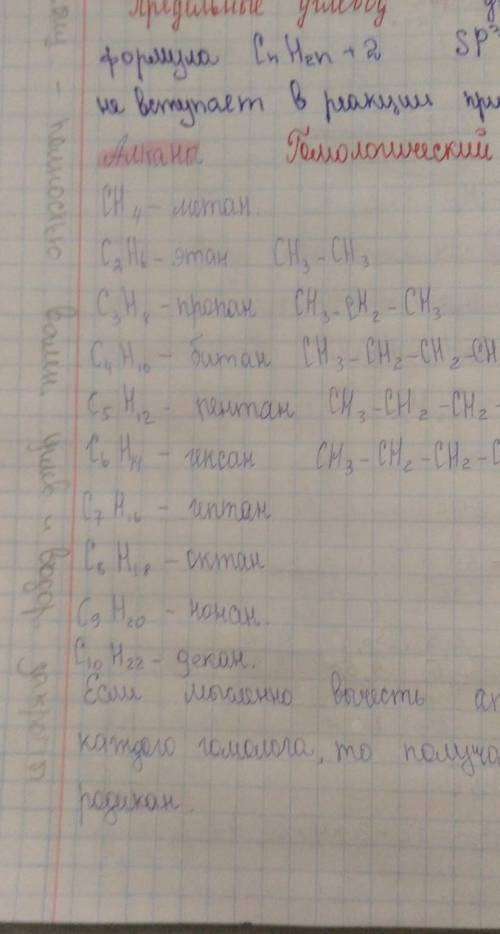 Предельные углевод
формула CnH2n+2 SP3
не вступает в реакции при
Алканы Гомологический
CH4 - метан.
C2H6 - этан CH3 - CH3
C3H8 - пропан CH3 - CH2 - CH3
C4H10 - битан CH3 - CH2 - CH2 - CH
C5H12 - пентан CH3 - CH2 - CH2 -
C6H14 - гиксан CH3 - CH2 - CH2 - C
C7H16 - гиптан
C8H18 - октан
C9H20 - нонан.
C10H22 - декан.
Если мысленно вычесть ат
каждого гомолога, то получа
родикан.
полностью вален. углев и водор.